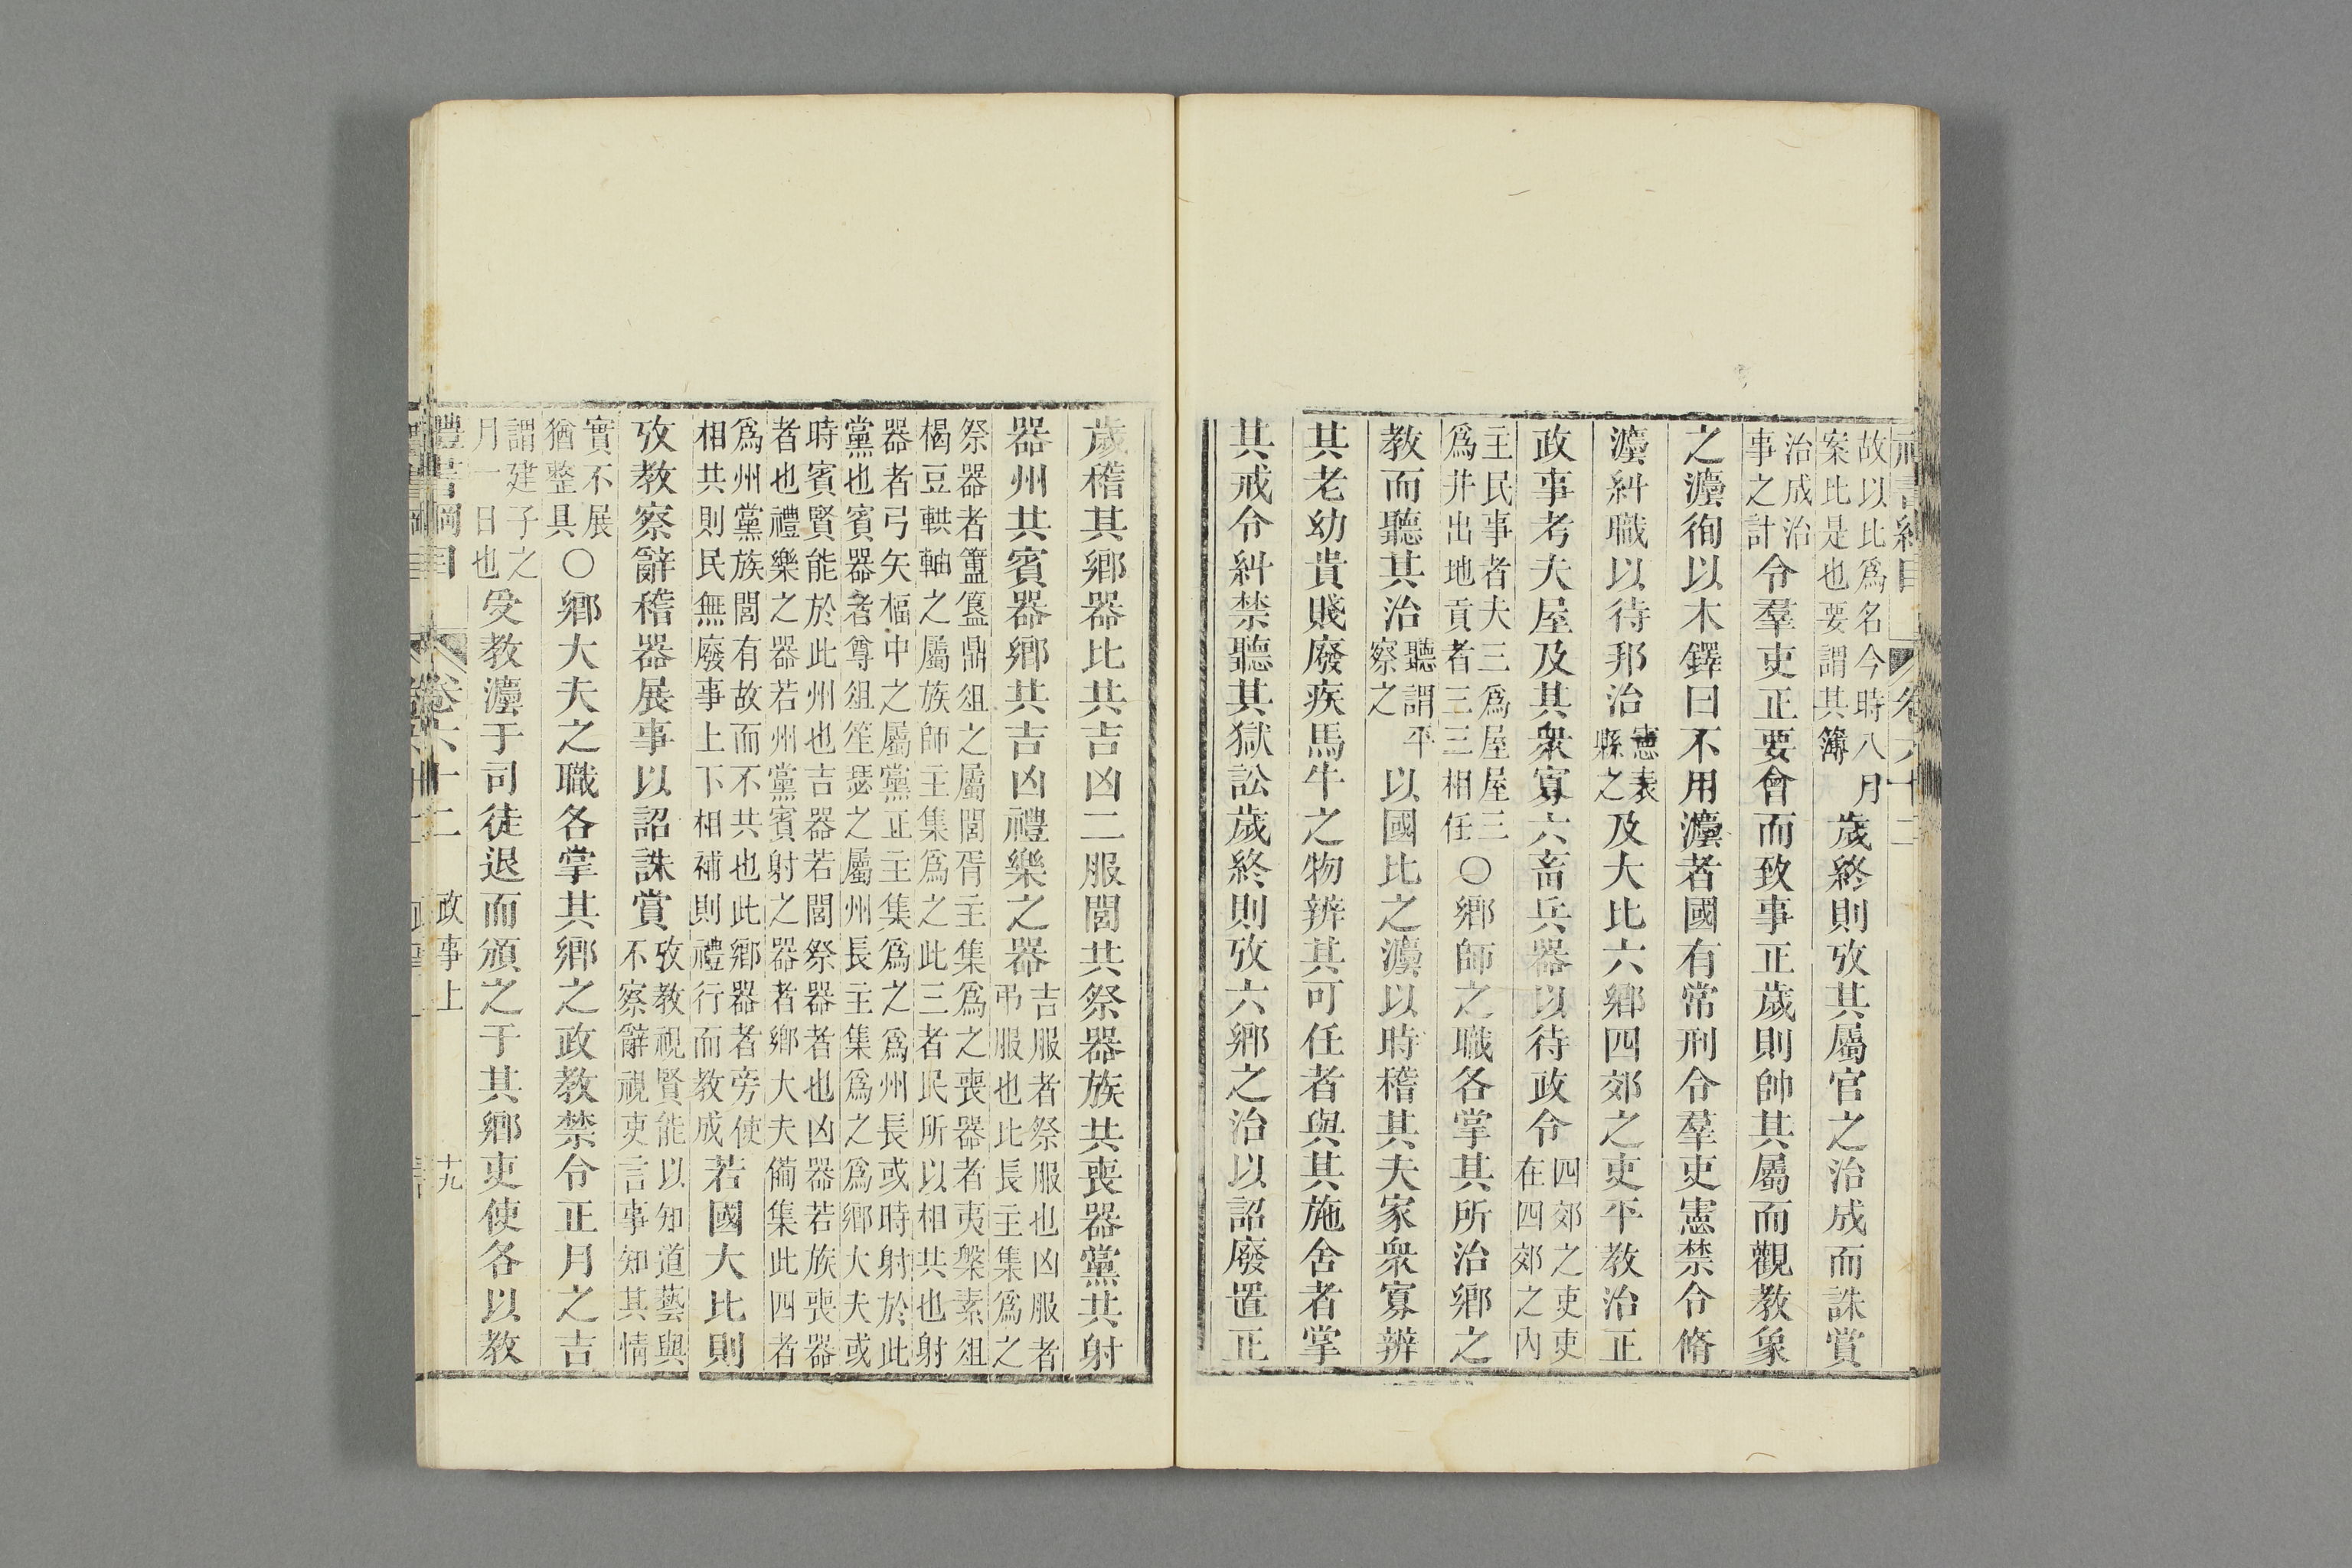 故以比爲名今時八月案比是也要謂其簿歲終則攷其屬官之治成而誅賞
治成治事之計令羣吏正要會而致事正歲則帥其屬而觀教象
之灋徇以木鐸曰不用灋者國有常刑令羣吏憲禁令脩
灋糾職以待邦治憲表縣之及大比六鄉四郊之吏平教治正
政事考夫屋及其衆寡六畜兵器以待政令四郊之吏吏在四郊之內
主民事者夫三爲屋屋三爲井出地貢者三三相任○鄉師之職各掌其所治鄉之
教而聽其治聽謂平察之以國比之灋以時稽其夫家衆寡辨
其老幼貴賤廢疾馬牛之物辨其可任者與其施舍者掌
其戒令糾禁聽其獄訟歲終則攷六鄉之治以詔廢置正
歲稽其鄉器比共吉凶二服閭共祭器族共喪器黨共射
器州共賓器鄉共吉凶禮樂之器吉服者祭服也凶服者弔服也比長主集爲之
祭器者簠簋鼎俎之屬閭胥主集爲之喪器者夷槃素俎
楬豆輁軸之屬族師主集爲之此三者民所以相共也射
器者弓矢楅中之屬黨正主集爲之爲州長或時射於此
黨也賓器者尊俎笙瑟之屬州長主集爲之爲鄉大夫或
時賓賢能於此州也吉器若閭祭器者也凶器若族喪器
者也禮樂之器若州黨賓射之器者鄉大夫備集此四者
爲州黨族閭有故而不共也此鄉器者旁使相共則民無廢事上下相補則禮行而教成若國大比則
攷教察辭稽器展事以詔誅賞攷教視賢能以知道藝與不察辭視吏言事知其情
實不展猶整具○鄉大夫之職各掌其鄉之政教禁令正月之吉
謂建子之月一日也受教灋于司徒退而頒之于其鄉吏使各以教
禮書綱目 卷六十二 政事上 十九